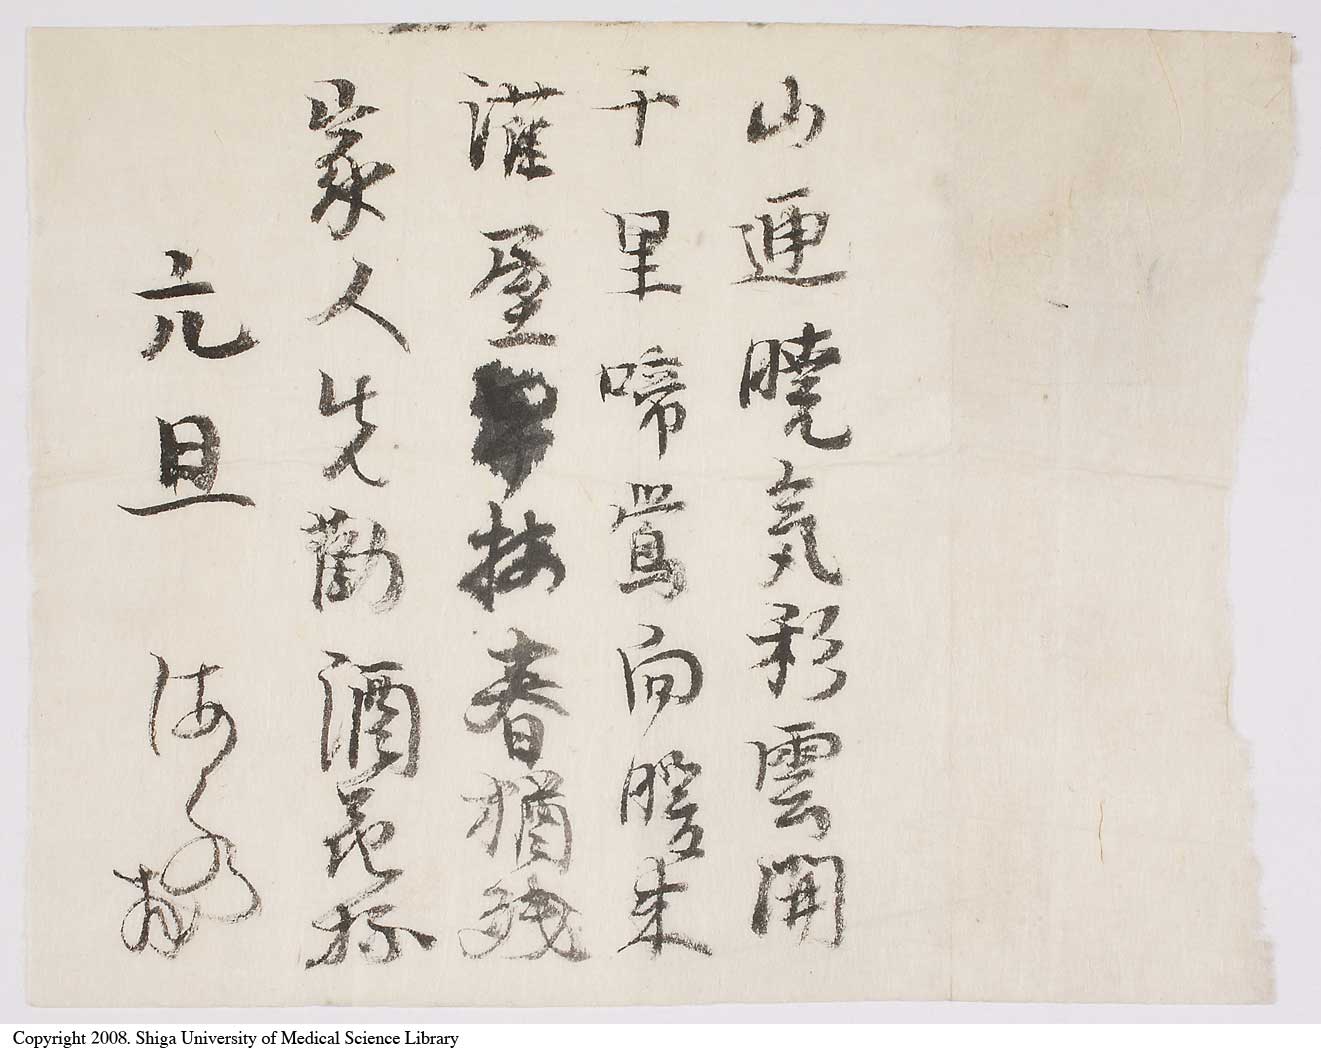 山連曉気彩雲開
千里啼鶯向暖来
灌屋梅春猶残
家人先勧酒花杯
元旦
Copyright 2008. Shiga University of Medical Science Library